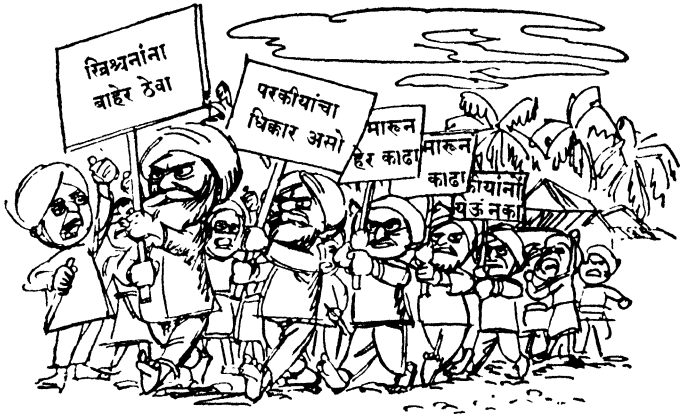 ख्रिश्चनांना
बाहेर ठेवा
परकीयांचा
धिकार असो
मारून
हेर काढा
मारून
काढा
कीयांना
येऊं नका